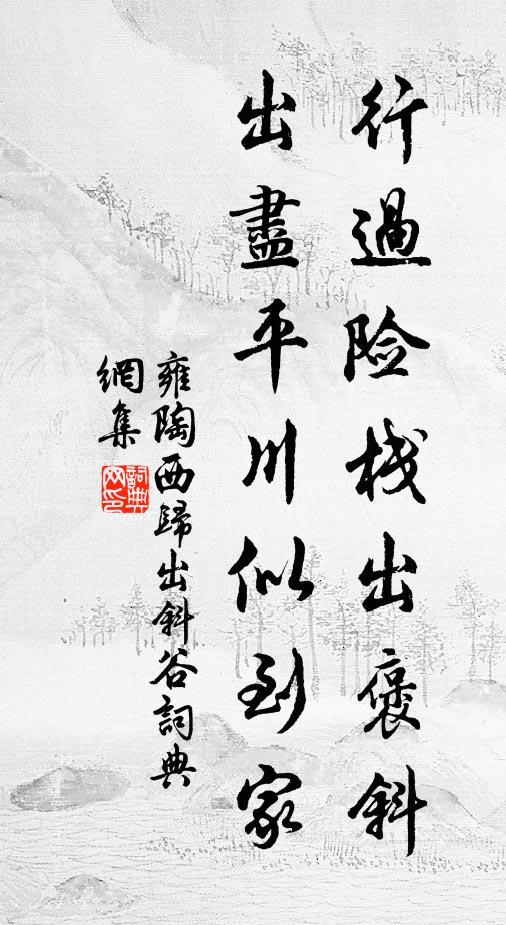 行過險棧出褒斜
出盡平川似到家
雍陶西歸出斜谷詞典
網集
詞典
网印